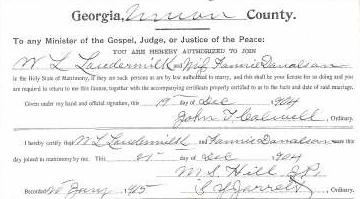 Georgia, Union County.
To any Minister of the Gospel, Judge, or Justice of the Peace:
YOU ARE HEREBY AUTHORIZED TO JOIN
W L Laudermilk and Miss Fannie Danalson
in the Holy State of Matrimony, if they are such persons as are by law authorized to marry, and this shall be your license for so doing and you
are required to return to me this license, together with the accompanying certificate properly certified to as to the facts and date of said marriage.
Given under my hand and official signature, this 19 day of Dec 1904
John T Calwell, Ordinary.
I hereby certify that W L Laudermilk and Fannie Danalson were this
day joined in matrimony by me. This 21 day of Dec 1904
M. S. Hill, J.P.
Recorded Jany 1905 S Y Jarrett, Ordinary.